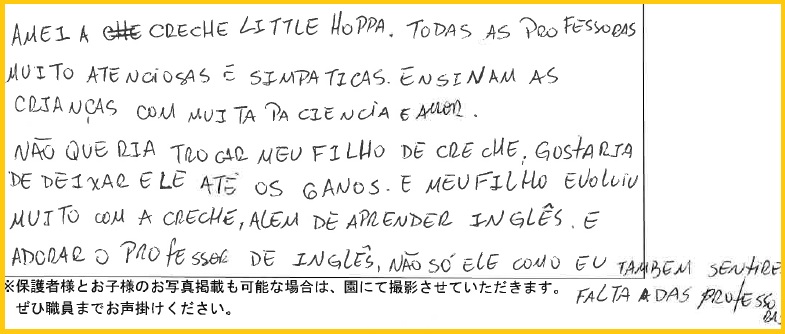 AMEI A CRECHE LITTLE HOPPA. TODAS AS PROFESSORAS
MUITO ATENCIOSAS E SIMPATICAS. ENSINAM AS
CRIANÇAS COM MUITA PACIENCIA E AMOR.
NÃO QUERIA TROCAR MEU FILHO DE CRECHE, GOSTARIA
DE DEIXAR ELE ATÉ OS 6 ANOS. E MEU FILHO EVOLUIU
MUITO COM A CRECHE, ALEM DE APRENDER INGLÊS. E
ADORAR O PROFESSOR DE INGLÊS, NÃO SÓ ELE COMO EU TAMBEM SENTIRE
FALTA DAS PROFESSORAS
※保護者様とお子様のお写真掲載も可能な場合は、園にて撮影させていただきます。
ぜひ職員までお声掛けください。